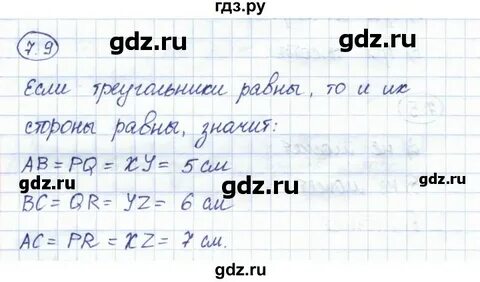 гдз.ру
7.9
gdz.ru gdz.ru
Если треугольники равны, то и их
стороны равны, значит:
gdz.ru gdz.ru
AB = PQ = XY = 5 см
BC = QR = YZ = 6 см
gdz.ru gdz.ru
AC = PR = XZ = 7 см.
gdz.ru gdz.ru